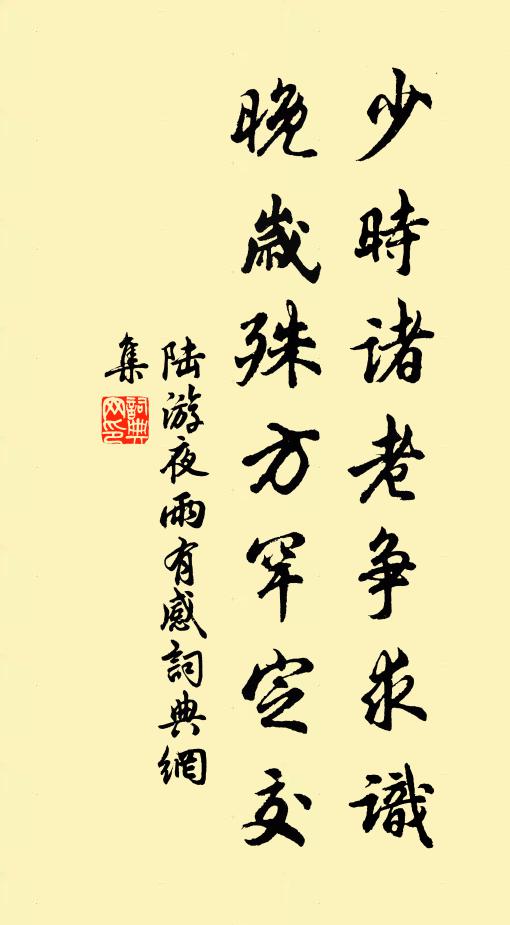 少時諸老爭求識
晚歲殊方罕定交
陆游夜雨有感詞典網
集
詞典
网印